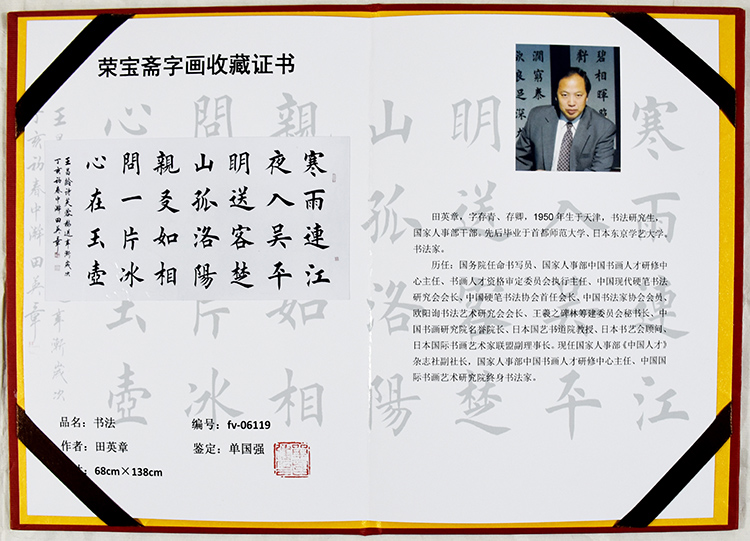 荣宝斋字画收藏证书
寒雨連江
夜入吳平
明送客楚
山孤洛陽
親友如相
問一片冰
心在玉壺
丁亥初春中澣 田英章
品名：书法
编号：fv-06119
作者：田英章
鉴定：单国强
68cm×138cm
田英章，字存青、存卿，1950年生于天津，书法研究生，
国家人事部干部。先后毕业于首都师范大学、日本东京学艺大学。
书法家。
历任：国务院任命书写员、国家人事部中国书画人才研修中
心主任、书画人才资格审定委员会执行主任、中国现代硬笔书法
研究会会长、中国硬笔书法协会首任会长、中国书法家协会会员、
欧阳询书法艺术研究会会长、王羲之碑林筹建委员会秘书长、中
国书画研究院名誉院长、日本国艺书道院教授、日本书艺会顾问、
日本国际书画艺术家联盟副理事长。现任国家人事部《中国人才》
杂志社副社长，国家人事部中国书画人才研修中心主任、中国国
际书画艺术研究院终身书法家。